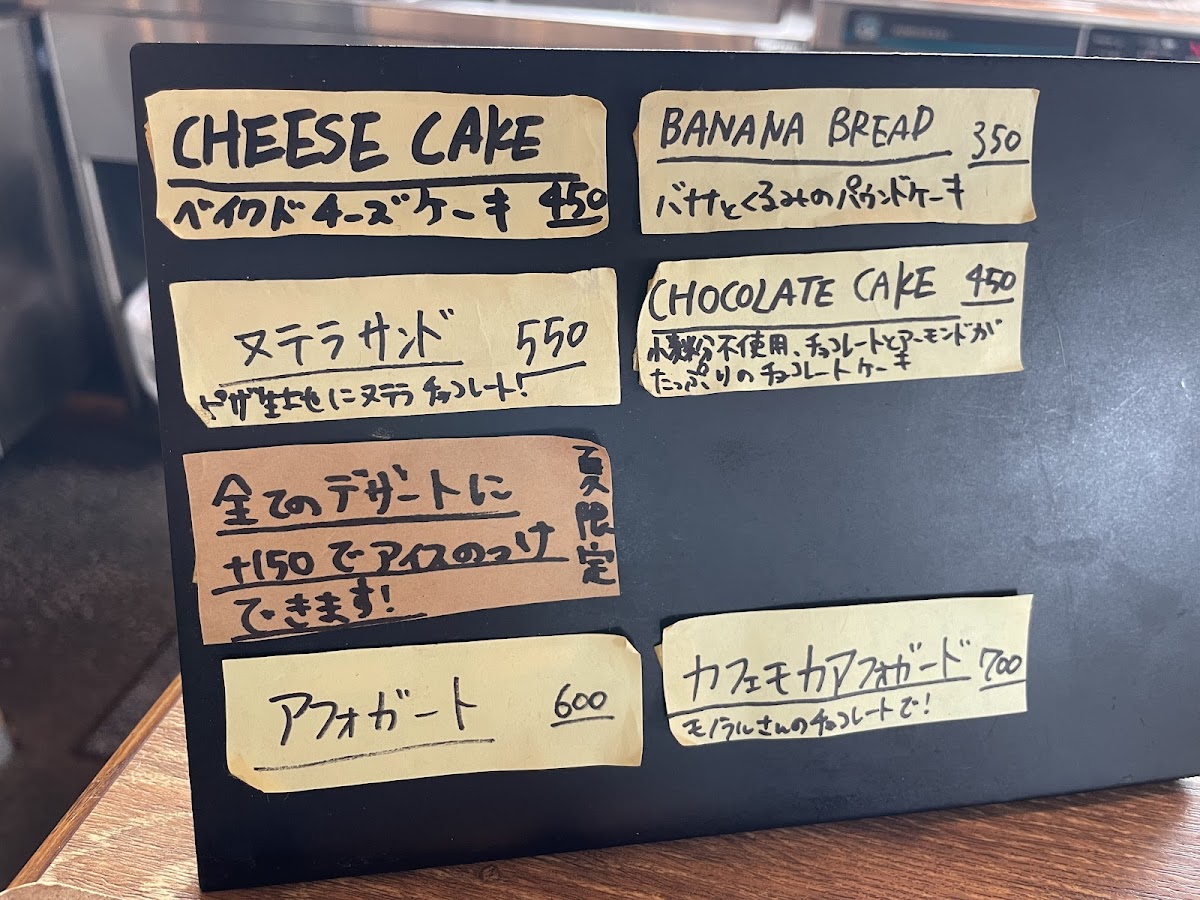 CHEESE CAKE
ベイクドチーズケーキ 450
BANANA BREAD 350
バナナとくるみのパウンドケーキ
ヌテラサンド 550
ピザ生地にヌテラチョコレート!
CHOCOLATE CAKE 450
小麦粉不使用、チョコレートとアーモンドが
たっぷりのチョコレートケーキ
全てのデザートに
+150でアイスのっけ
できます!
夏限定
アフォガート 600
カフェモカアフォガード 700
モノラルさんのチョコレートで!